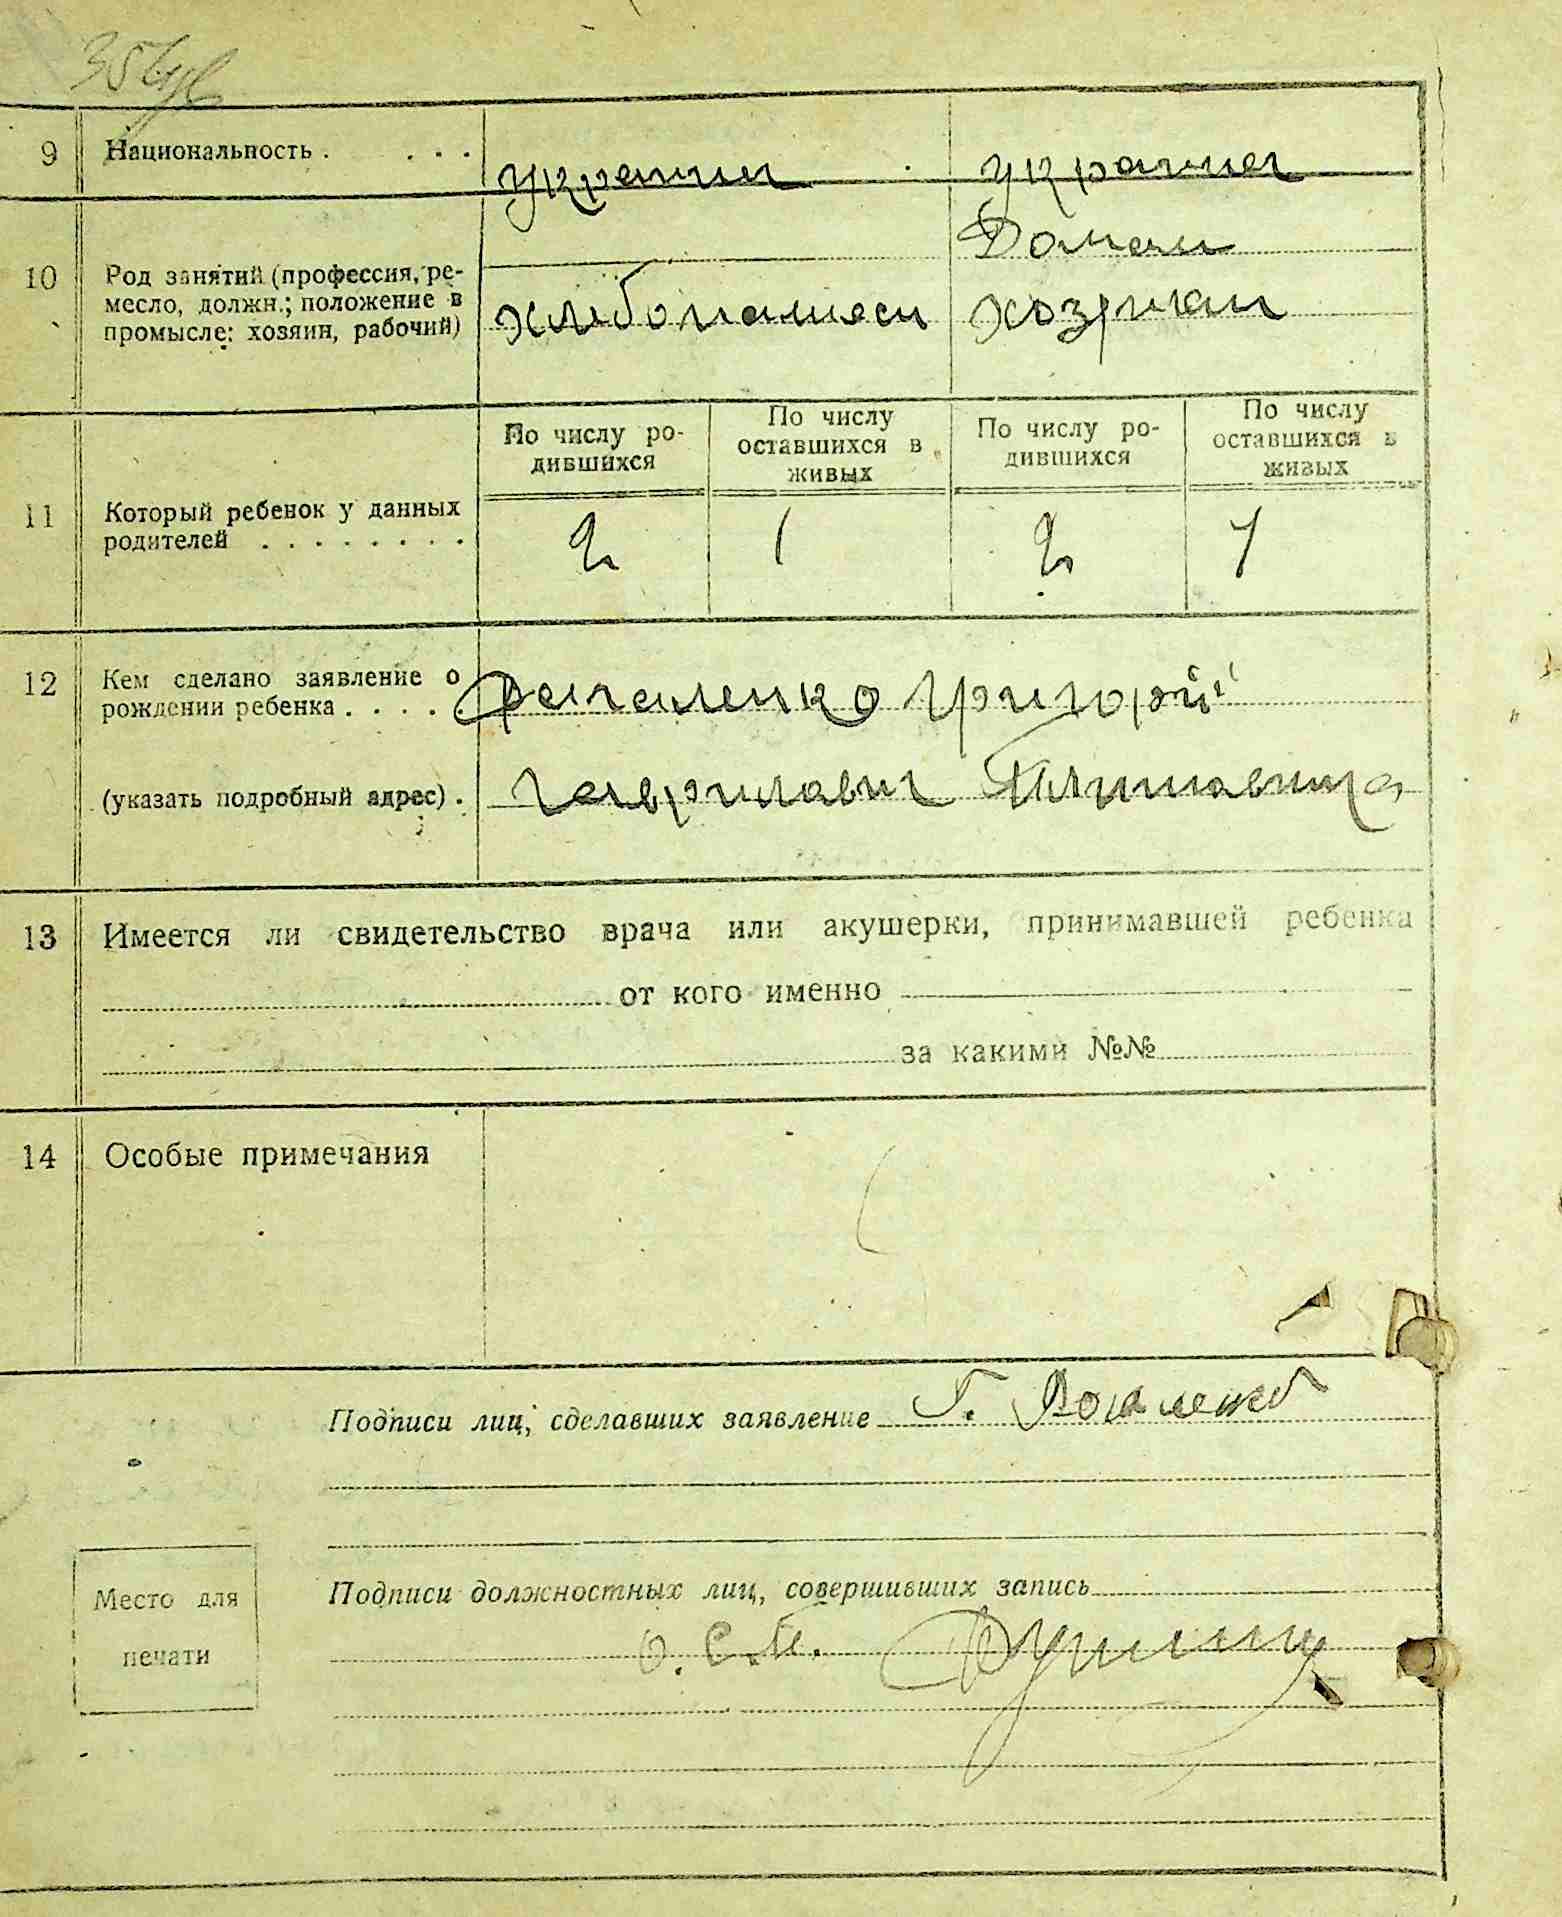 9 Национальность . . . . украинец украинец
10 Род занятий (профессия, ре-
месло, должн.; положение в
промысле: хозяин, рабочий)
Домаш
хлебопашест хозяйств
11 Который ребенок у данных
родителей . . . . . . . .
По числу ро-
дившихся
По числу
оставшихся в
живых
По числу ро-
дившихся
По числу
оставшихся в
живых
2 1 2 1
12 Кем сделано заявление о
рождении ребенка . . . .
Григорий
(указать подробный адрес) .
Гаврилович
13 Имеется ли свидетельство врача или акушерки, принимавшей ребенка
от кого именно
за какими №№
14 Особые примечания
Подписи лиц, сделавших заявление Г.
Подписи должностных лиц, совершивших запись
Место для
печати